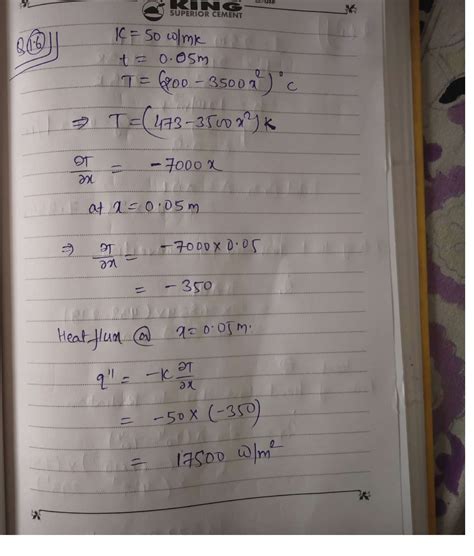 KING
SUPERIOR CEMENT
Q 1.6
K = 50 w/mk
t = 0.05m
T = (200 - 3500x²)°c
⇒ T = (473 - 3500x²)k
∂T/∂x = -7000x
at x = 0.05m
⇒ ∂T/∂x = -7000 x 0.05
= -350
Heat flux @ x = 0.05m.
q" = -k ∂T/∂x
= -50 x (-350)
= 17500 w/m²